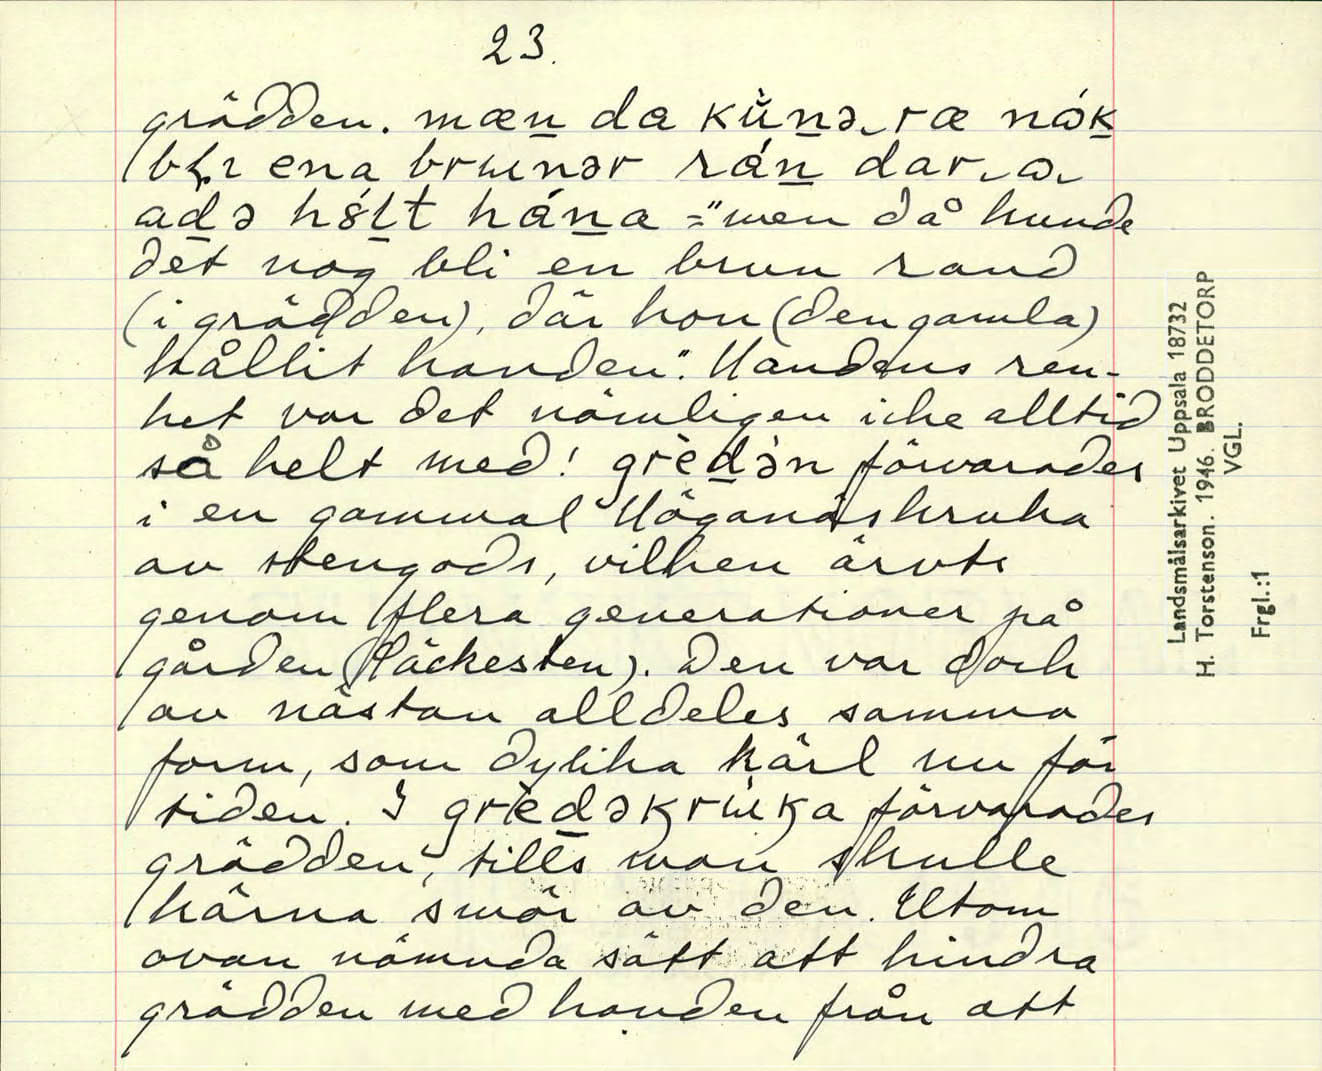 23.
grädden. mæn da kùnə ræ nɷ́k
bḷɪ ena brɯnər rán dar ɷ
adə hȣ́lt hána = "men då kunde
det nog bli en brun rand
(i grädden), där hon (den gamla)
hållit handen". Handens ren-
het var det nämligen icke alltid
så helt med! grèdə̀n förvarades
i en gammal Höganäskruka
av stengods, vilken ärvts
genom flera generationer på
gården (Häckesten). Den var dock
av nästan alldeles samma
form, som dylika kärl nu för
tiden. I grèdəkrɯ̀ka förvarades
grädden, tills man skulle
kärna smör av den. Utom
ovan nämnda sätt att hindra
grädden med handen från att
Landsmålsarkivet Uppsala 18732
H. Torstenson. 1946. BRODDETORP
VGL.
Frgl.:1